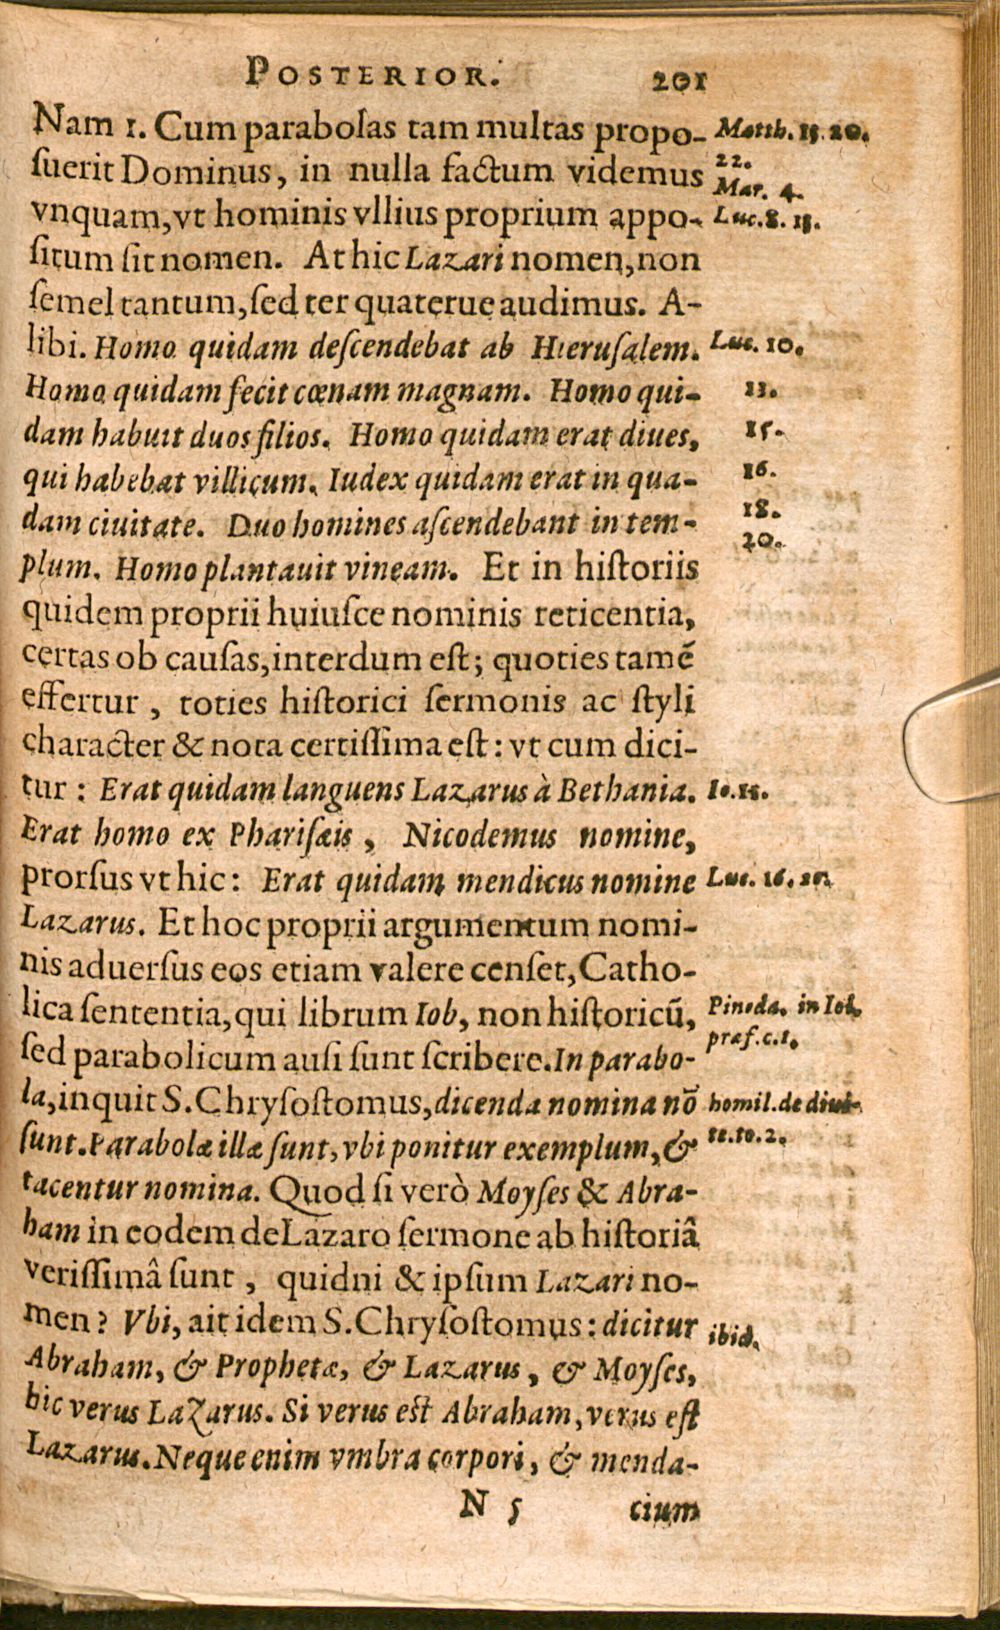 POSTERIOR. 201
Nam 1. Cum parabolas tam multas propo-
suerit Dominus, in nulla factum videmus
vnquam, vt hominis vllius proprium appo-
situm sit nomen. At hic Lazari nomen, non
semel tantum, sed ter quaterue audimus. A-
libi. Homo quidam descendebat ab Hierusalem.
Homo quidam fecit cœnam magnam. Homo qui-
dam habuit duos filios. Homo quidam erat diues,
qui habebat villicum. Iudex quidam erat in qua-
dam ciuitate. Duo homines ascendebant in tem-
plum. Homo plantauit vineam. Et in historiis
quidem proprii huiusce nominis reticentia,
certas ob causas, interdum est; quoties tamē
effertur, toties historici sermonis ac styli
character & nota certissima est: vt cum dici-
tur: Erat quidam languens Lazarus à Bethania.
Erat homo ex Pharisæis, Nicodemus nomine,
prorsus vt hic: Erat quidam mendicus nomine
Lazarus. Et hoc proprii argumentum nomi-
nis aduersus eos etiam valere censet, Catho-
lica sententia, qui librum Iob, non historicū,
sed parabolicum ausi sunt scribere. In parabo-
la, inquit S. Chrysostomus, dicenda nomina nō
sunt. Parabolæ illæ sunt, vbi ponitur exemplum, &
tacentur nomina. Quod si verò Moyses & Abra-
ham in eodem de Lazaro sermone ab historiâ
verissimâ sunt, quidni & ipsum Lazari no-
men? Vbi, ait idem S. Chrysostomus: dicitur
Abraham, & Prophetæ, & Lazarus, & Moyses,
hic verus Lazarus. Si verus est Abraham, verus est
Lazarus. Neque enim vmbra corpori, & menda-
N 5 cium
Matth. 13. 20.
22.
Mar. 4.
Luc. 8. 13.
Luc. 10.
15.
16.
18.
20.
Io. 11.
Luc. 16. 20.
Pineda. in Iob.
præf. c. 1.
homil. de diui-
te. to. 2.
ibid.